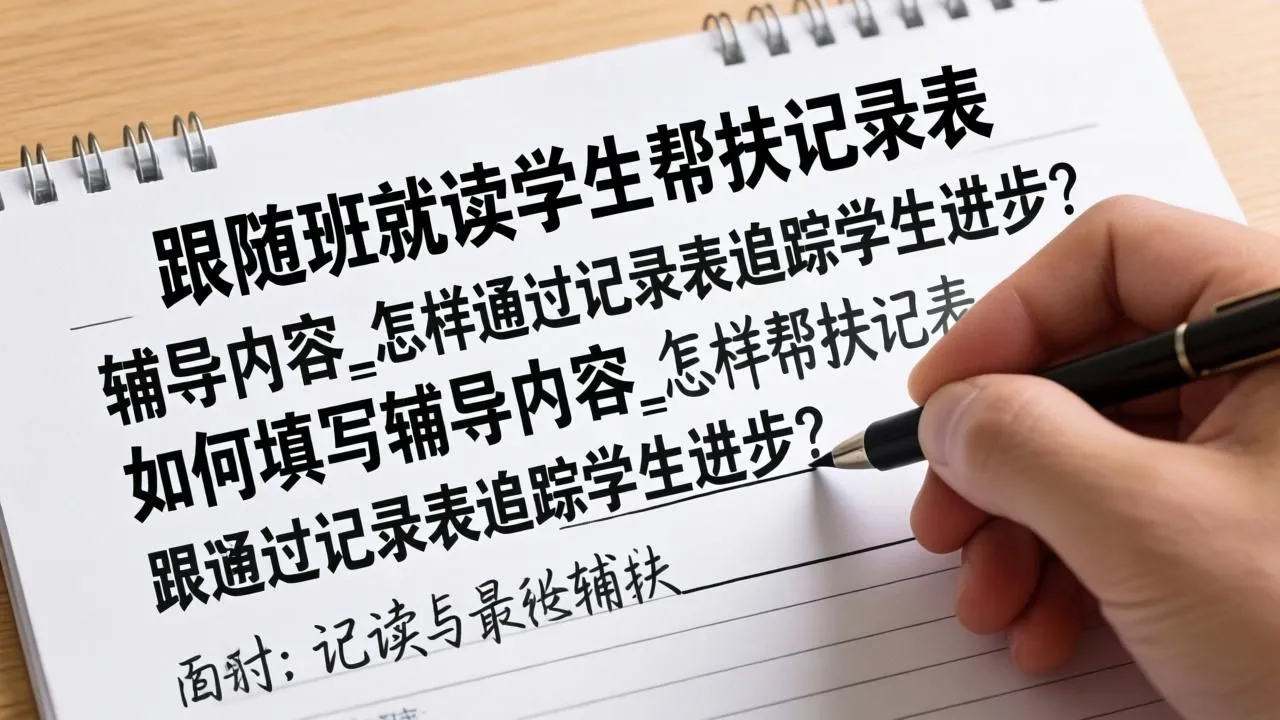 跟随班就读学生帮扶记录表
辅导内容=怎样通过记录表追踪学生进步?
如何填写辅导内容=怎样帮扶记表
跟通过记录表追踪学生进步?
记读与最後辅扶